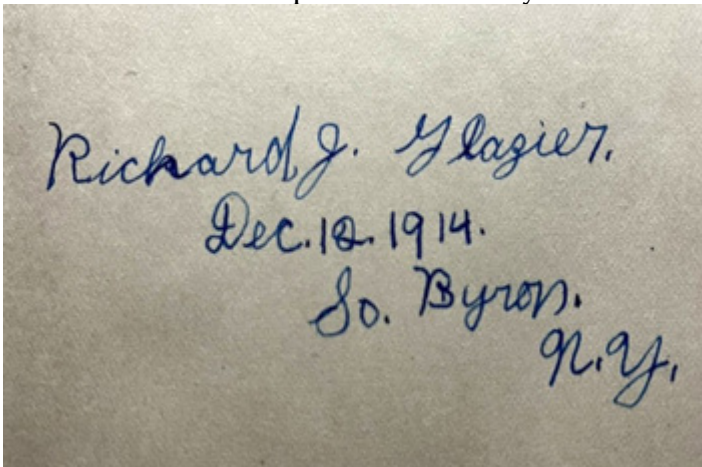 Richard J. Glazier.
Dec. 12. 1914.
So. Byron.
N.Y.